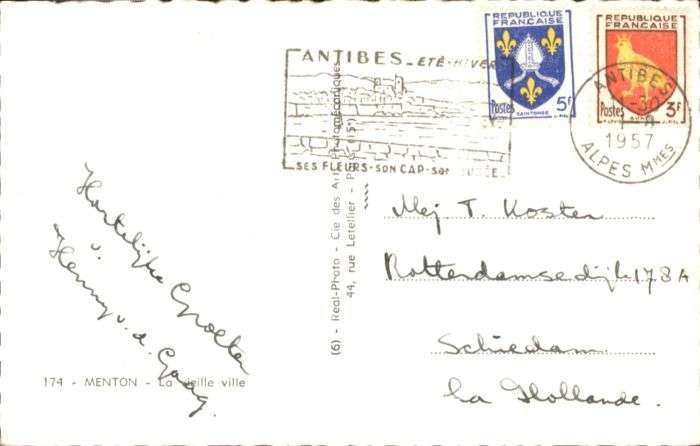 Hartelijke Groeten
v.
Henny v. d. Gaag.
174 - MENTON - La vieille ville
(6) - Real-Photo - Cie des Arts Photomécaniques
44, rue Letellier - (15e)
ANTIBES - ÉTÉ - HIVER
SES FLEURS - SON CAP - son
REPUBLIQUE
FRANÇAISE
Postes 5F
SAINTONGE
REPUBLIQUE
FRANÇAISE
Postes 3F
AUNIS
ANTIBES
1957
ALPES Mmes
Mej T. Koster
Rotterdamsedijk 178A
Schiedam
La Hollande.